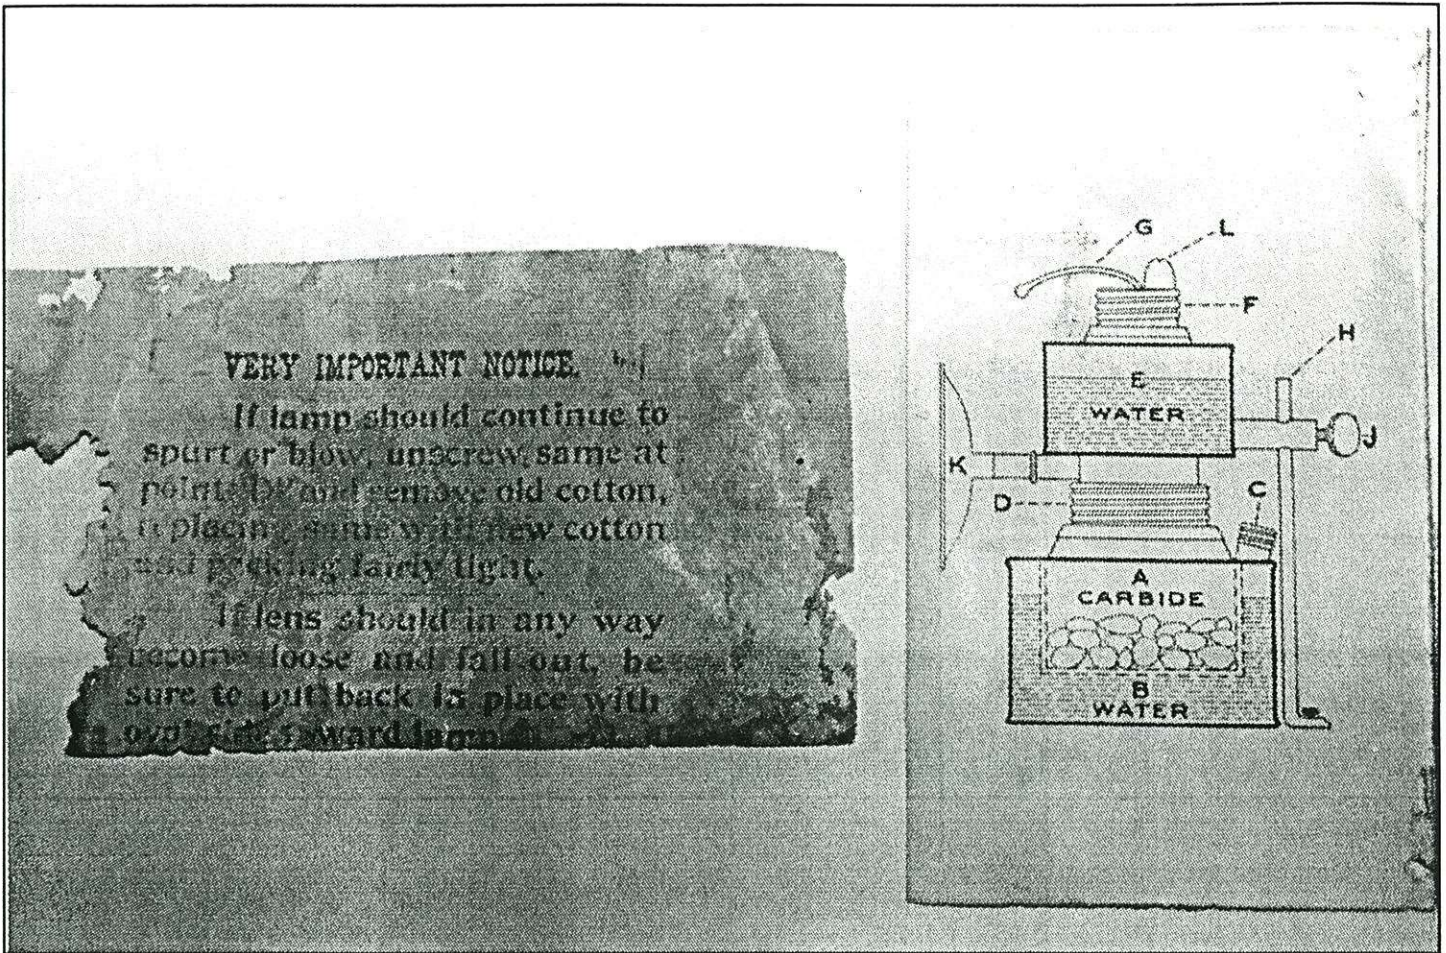 VERY IMPORTANT NOTICE.
If lamp should continue to
spurt or blow, unscrew same at
point "D" and remove old cotton,
replacing same with new cotton
and packing fairly tight.
If lens should in any way
become loose and fall out, be
sure to put back in place with
side toward lamp
G
L
F
H
E
WATER
J
K
D
C
A
CARBIDE
B
WATER